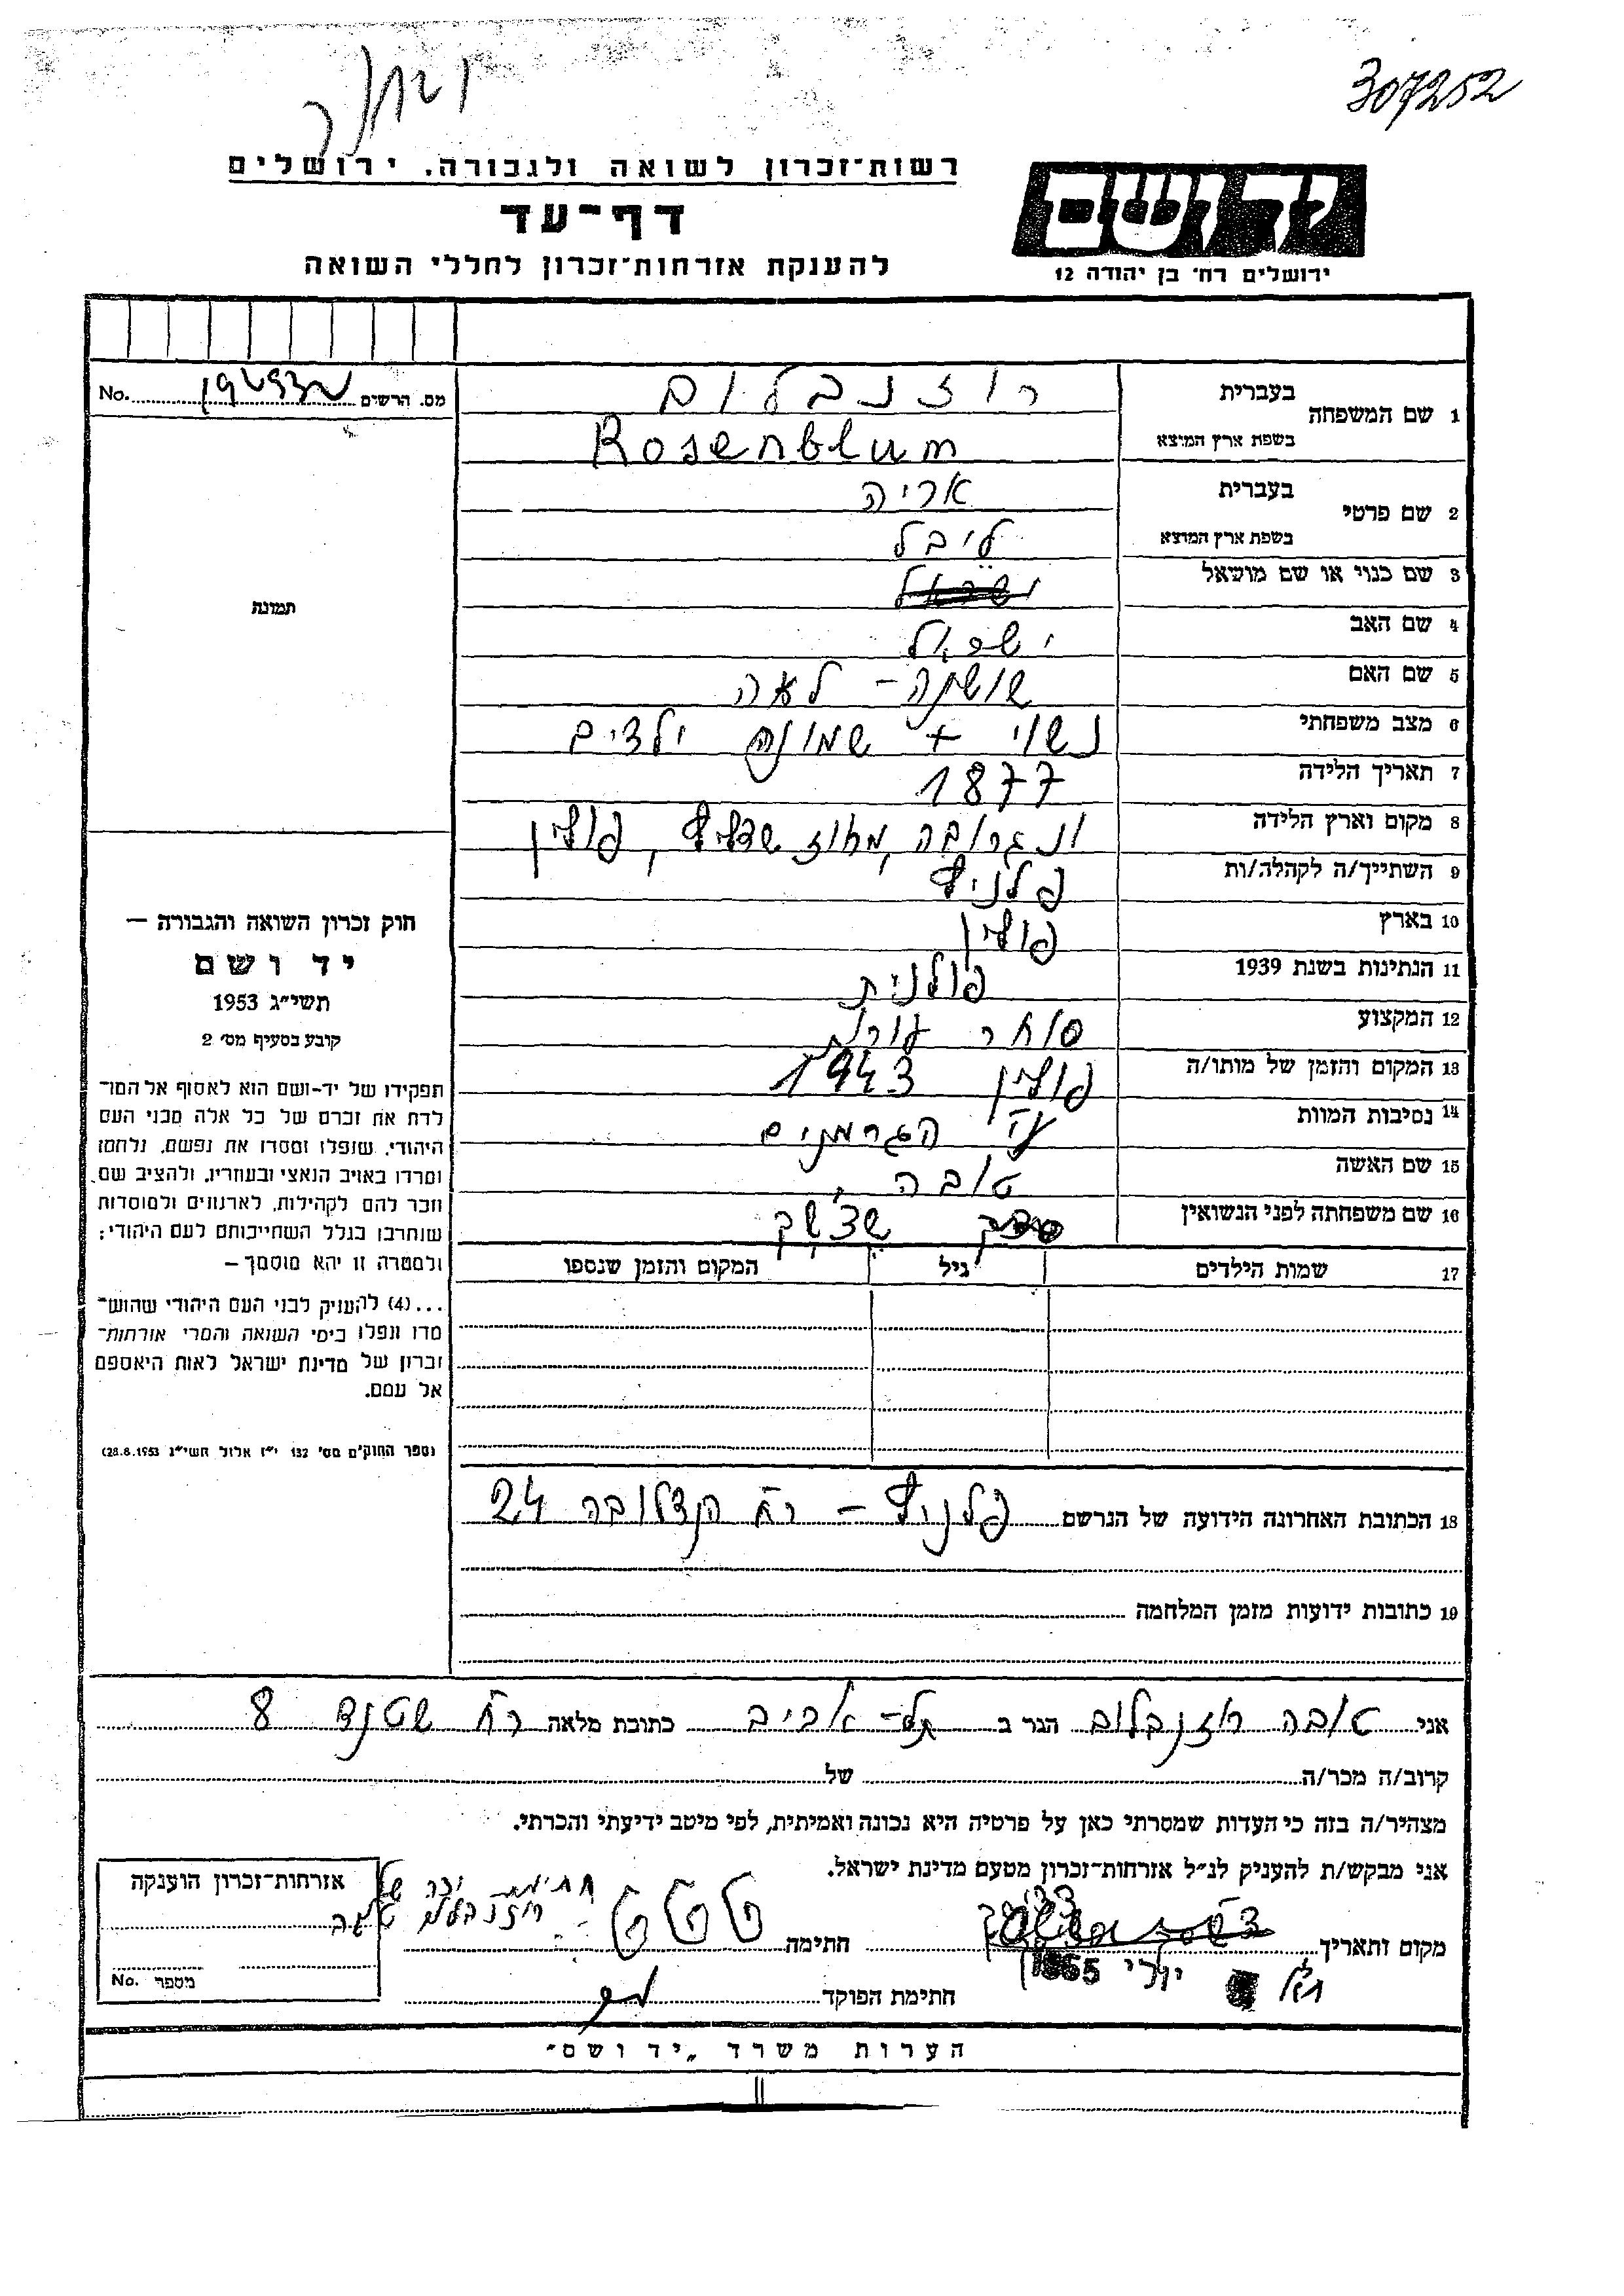 307252
רשות־זכרון לשואה ולגבורה. ירושלים
יד ושם
דף־עד
להענקת אזרחות־זכרון לחללי השואה
ירושלים רח' בן יהודה 12
מס. הרשים No.
1 שם המשפחה
בעברית רוזנבלום
בשפת ארץ המוצא Rosenblum
2 שם פרטי
בעברית אריה
בשפת ארץ המוצא ליבל
3 שם כנוי או שם מושאל
4 שם האב ישראל
5 שם האם שושנה - לאה
6 מצב משפחתי נשוי + שמונה ילדים
7 תאריך הלידה 1877
8 מקום וארץ הלידה ונגרובה, מחוז שדליץ, פולין
9 השתייך/ה לקהלה/ות
10 בארץ פולין
11 הנתינות בשנת 1939 פולנית
12 המקצוע סוחר עורות
13 המקום והזמן של מותו/ה פולין 1943
14 נסיבות המוות ע"י הגרמנים
15 שם האשה טובה
16 שם משפחתה לפני הנשואין
17 שמות הילדים גיל המקום והזמן שנספו
תמונה
חוק זכרון השואה והגבורה —
יד ושם
תשי"ג 1953
קובע בסעיף מס' 2
תפקידו של יד-ושם הוא לאסוף אל המו־
לדת את זכרם של כל אלה מבני העם
היהודי, שנפלו ומסרו את נפשם, נלחמו
ומרדו באויב הנאצי ובעוזריו, ולהציב שם
וזכר להם לקהילות, לארגונים ולמוסדות
שנחרבו בגלל השתייכותם לעם היהודי;
ולמטרה זו יהא מוסמך —
...(4) להעניק לבני העם היהודי שהוש־
מדו ונפלו בימי השואה והמרי אזרחות־
זכרון של מדינת ישראל לאות היאספם
אל עמם.
(ספר החוקים מס' 132 י"ז אלול תשי"ג 28.8.1953)
18 הכתובת האחרונה הידועה של הנרשם 24
19 כתובות ידועות מזמן המלחמה
אני טובה רוזנבלום הגר ב תל-אביב כתובת מלאה רח' שטנד 8
קרוב/ה מכר/ה של
מצהיר/ה בזה כי העדות שמסרתי כאן על פרטיה היא נכונה ואמיתית, לפי מיטב ידיעתי והכרתי.
אני מבקש/ת להעניק לנ"ל אזרחות־זכרון מטעם מדינת ישראל.
מקום ותאריך
חתימה
חתימת הפוקד
אזרחות־זכרון הוענקה
מספר No.
הערות משרד „יד ושם"